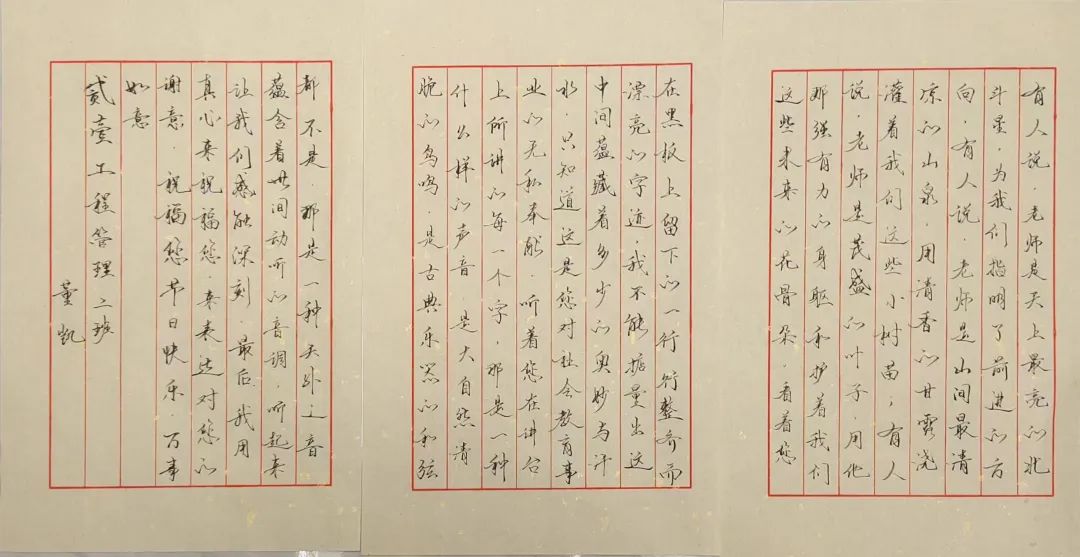 有人说，老师是天上最亮的北
斗星，为我们指明了前进的方
向，有人说，老师是山间最清
凉的山泉，用清香的甘露浇
灌着我们这些小树苗；有人
说，老师是茂盛的叶子，用他
那强有力的身躯和护着我们
这些未来的花骨朵，看着您
在黑板上留下的一行行整齐而
漂亮的字迹，我不能掂量出这
中间蕴藏着多少的奥妙与汗
水，只知道这是您对社会教育事
业的无私奉献，听着您在讲台
上所讲的每一个字，那是一种
什么样的声音，是大自然清
脆的鸟鸣，是古典乐器的和弦
都不是，那是一种天外之音
蕴含着世间动听的音调，听起来
让我们感触深刻，最后，我用
真心来祝福您来表达对您的
谢意，祝福您节日快乐，万事
如意
贰壹工程管理二班
董凯